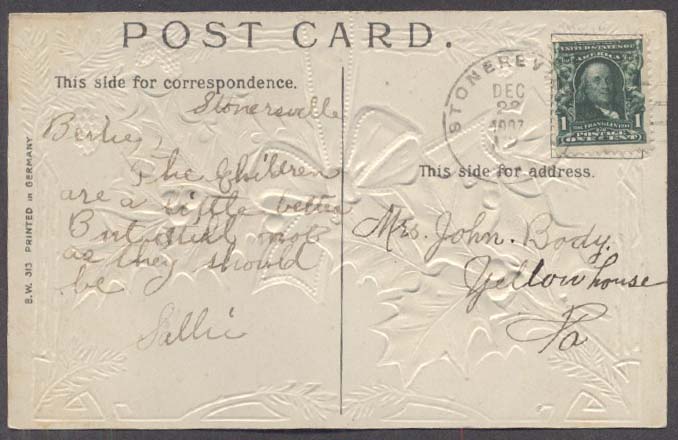 POST CARD.
This side for correspondence.
Stonersville
Bertie,
The Children
are a little better
But still not
as they should
be
Sallie
B.W. 313 PRINTED IN GERMANY
STONERSV
DEC
22
1907
UNITED STATES OF
AMERICA
1 1
FRANKLIN
POSTAGE
ONE CENT
This side for address.
Mrs. John. Body.
Yellow house
Pa